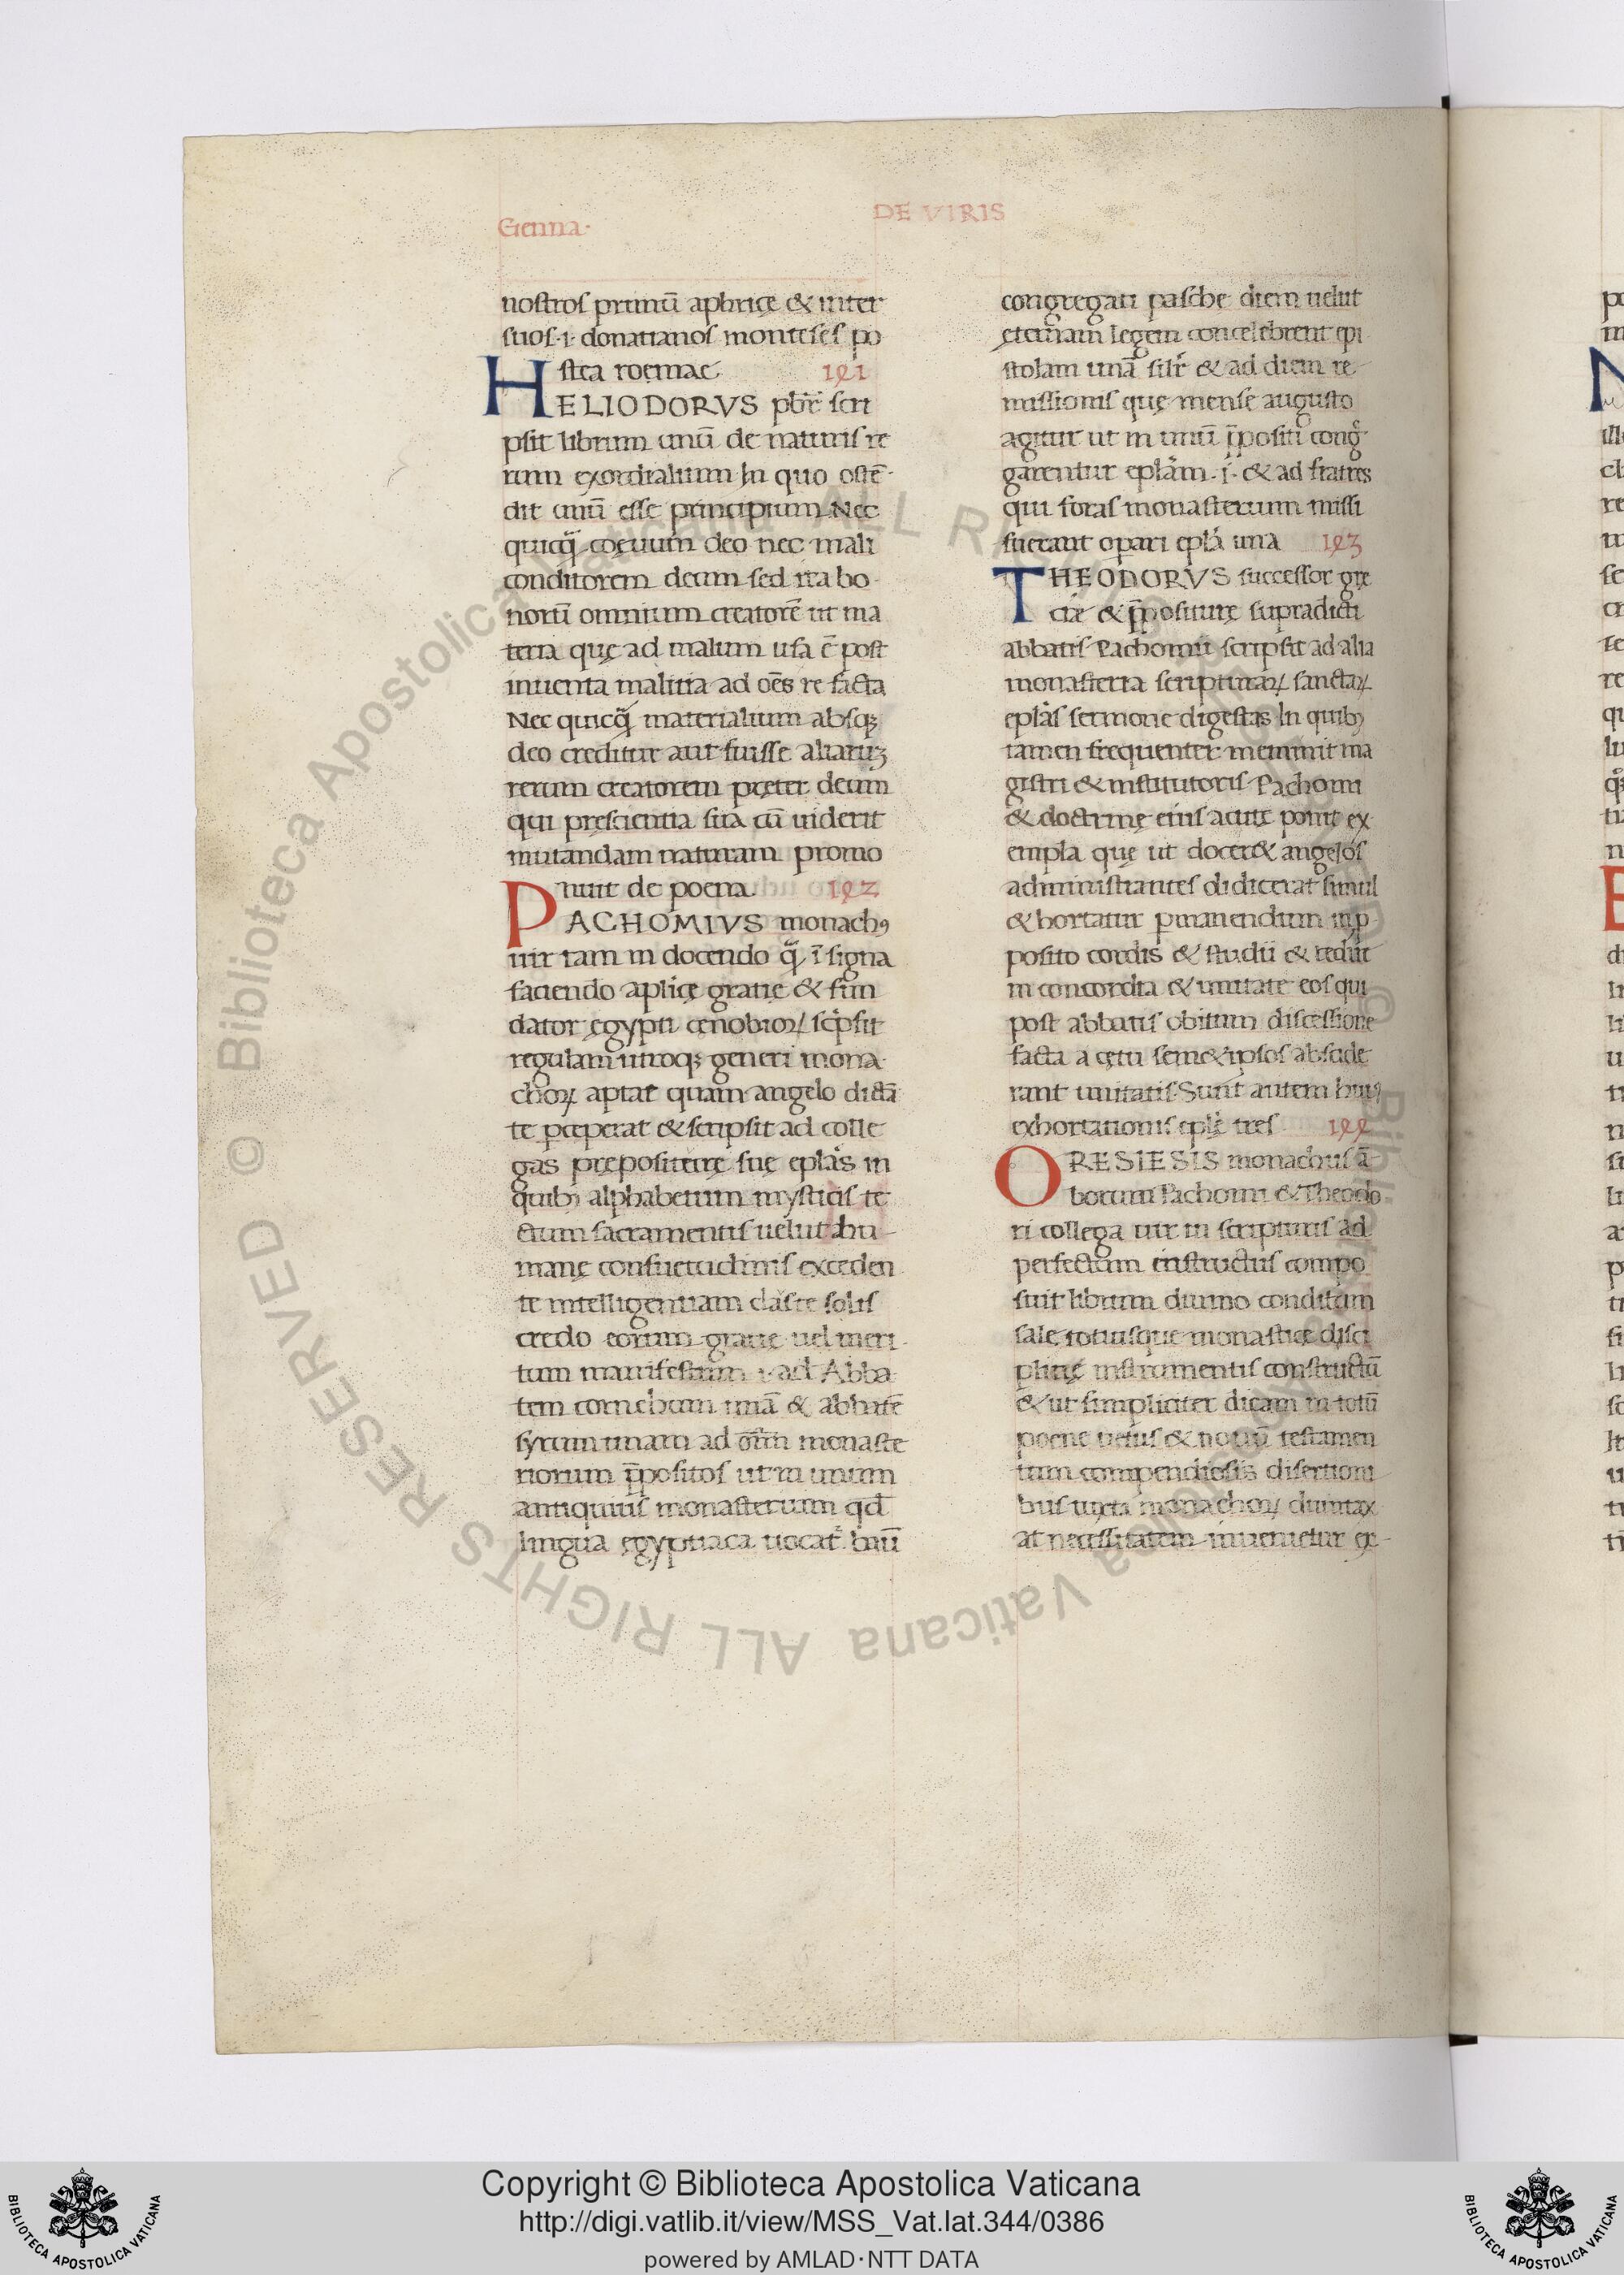 Genna·
DE VIRIS
nostros primū aphricę & inter
suos·i· donatianos monteses po
stea roemae 141
HELIODORVS pbr̄ scri
psit librum unū de naturis re
rum exordialium In quo ostē
dit unū esse principium Nec
quicq̄ coęuum deo nec mali
conditorem deum sed ita bo
norū omnium creatorē ut ma
teria quę ad malum usa ē post
inuenta malitia ad oēs re facta
Nec quicq̄ materialium absq;
deo creditur aut fuisse aliarūȝ
rerum creatorem pręter deum
qui prescientia sua cū uiderit
mutandam naturam promo
nuit de poena. 142
PACHOMIVS monachꝯ
uir tam in docendo q̄ ī signa
faciendo aplicę gratię & fun
dator ęgypti cenobioꝝ scpsit
regulam utroq; generi mona
choꝝ aptat quam angelo dictā
te pceperat & scripsit ad colle
gas prępositurę suę eplas in
quibꝫ alphabetum mysticis te
ctum sacramentis uelut hu
manę consuetudinis exceden
te intelligentiam clasre solis
credo eorum gratię uel meri
tum manifestum i· ad Abba
tem cornelium unā & abbatē
syrum unam ad om̄n monaste
riorum p̄positos ut in unum
antiquius monasterium qd̄
lingua ęgyptiaca uocat̄ baū
congregati pasche diem uelut
ęternam legem concelebrent epi
stolam unā silr̄ & ad diem re
missionis quę mense augusto
agitur ut in unū p̄positi cong
garentur eplam·i· & ad fratres
qui foras monasterium missi
fuerant opari epla una 143
THEODORVS successor gre
ciae & p̄positurę supradicti
abbatis Pachomii scripsit ad alia
monasteria scripturaꝝ sanctaꝝ
eplas sermone digestas In quibꝫ
tamen frequenter meminit ma
gistri & institutoris Pachomi
& doctrinę eius acutę ponit ex
empla que ut docer& angelos
administrantes didicerat simul
& hortatur pmanendum in p
posito cordis & studii & reduit
in concordia & unitate eos qui
post abbatis obitum discessione
facta a cętu sem&ipsos abscide
rant unitatis·Sunt autem huiꝯ
exhortationis eplę tres 144
ORESIESIS monachus ā
borum Pachomi & Theodo
ri collega uir in scripturis ad
perfectum instructus compo
suit librum diuino conditum
sale totiusque monasticę disci
plinę instrumentis constructū
& ut simpliciter dicam in totū
poene uetus & nouū testamen
tum compendiosis disertioni
bus iuxta monachoꝝ dumtax
at necessitatem inuenietur ex
Copyright © Biblioteca Apostolica Vaticana
http://digi.vatlib.it/view/MSS_Vat.lat.344/0386
powered by AMLAD·NTT DATA
BIBLIOTECA APOSTOLICA VATICANA
BIBLIOTECA APOSTOLICA VATICANA
© Biblioteca Apostolica Vaticana ALL RIGHTS RESERVED © Biblioteca Apostolica Vaticana ALL RIGHTS RESERVED